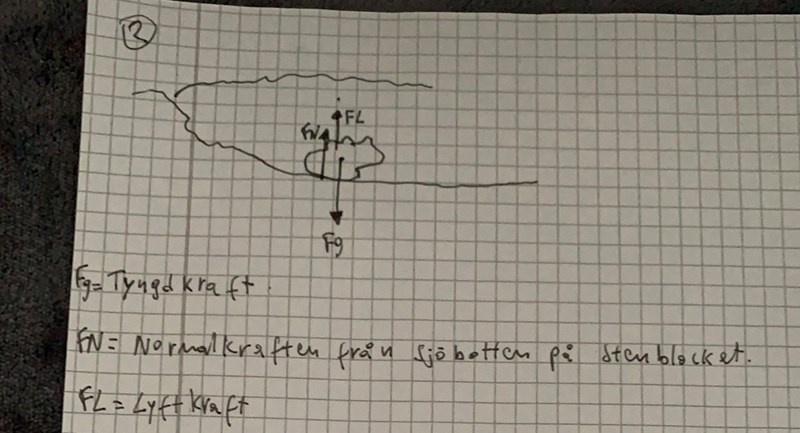 2
FL
FN
Fg
Fg= Tyngdkraft.
FN= Normalkraften från Sjöbotten på Stenblocket.
FL= Lyftkraft